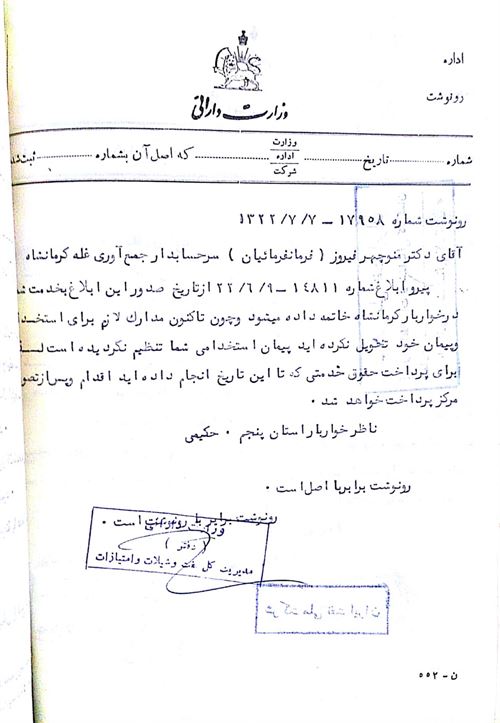 اداره
رونوشت
وزارت دارائی
شماره ........ تاریخ ........ وزارت اداره شرکت ........ که اصل آن بشماره ........ ثبت شد
رونوشت شماره ۱۷۹۵۸ – ۱۳۲۲/۷/۷
آقای دکتر منوچهر فیروز ( فرمانفرمائیان ) سرحسابدار جمع آوری غله کرمانشاه
پیرو ابلاغ شماره ۱۴۸۱۱ – ۲۲/۶/۹ از تاریخ صدور این ابلاغ بخدمت
درخواربار کرمانشاه خاتمه داده میشود وچون تاکنون مدارک لازم برای
وپیمان خود تحویل نکرده اید پیمان استخدامی شما تنظیم نگردیده است
برای پرداخت حقوق خدمتی که تا این تاریخ انجام داده اید اقدام وپس از
مرکز پرداخت خواهد شد .
ناظر خواربار استان پنجم . حکیمی
رونوشت برابر با اصل است .
رونوشت برابر با رونوشت است .
( دفتر )
مدیریت کل نفت وشیلات وامتیازات
شرکت ملی نفت ایران
ن – ۵۵۲